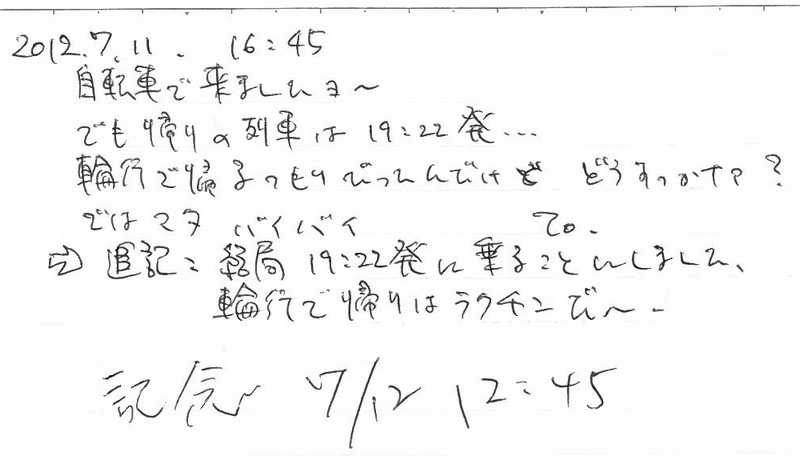 2012.7.11. 16:45
自転車で来ましたヨ〜
でも帰りの列車は19:22発...
輪行で帰るつもりだったんだけど どうすっかナァ?
ではマタ バイバイ To.
⇨ 追記:結局19:22発に乗ることにしました、
輪行で帰りはラクチンだ〜.
記念 7/12 12:45